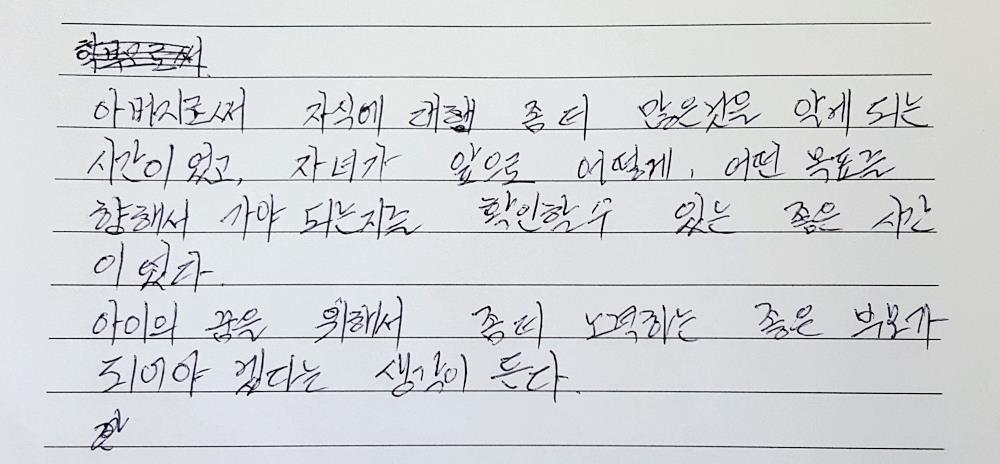 아버지로써 자식에 대해 좀 더 많은것을 알게 되는
시간이 었고, 자녀가 앞으로 어떻게, 어떤 목표를
향해서 가야 되는지를 확인할 수 있는 좋은 시간
이 었다.
아이의 꿈을 위해서 좀 더 노력하는 좋은 부모가
되어야 겠다는 생각이 든다.